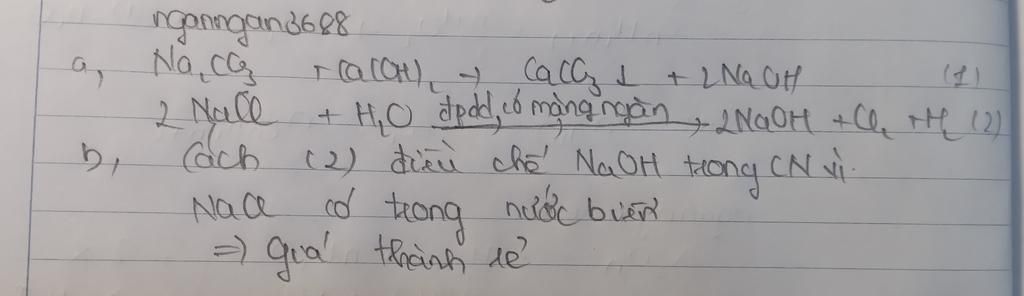 nganngan3688
a, Na₂CO₃ + Ca(OH)₂ → CaCO₃↓ + 2NaOH (1)
2NaCl + H₂O đpdd, có màng ngăn → 2NaOH + Cl₂ + H₂ (2)
b, Cách (2) điều chế NaOH trong CN vì
NaCl có trong nước biển
=> giá thành rẻ